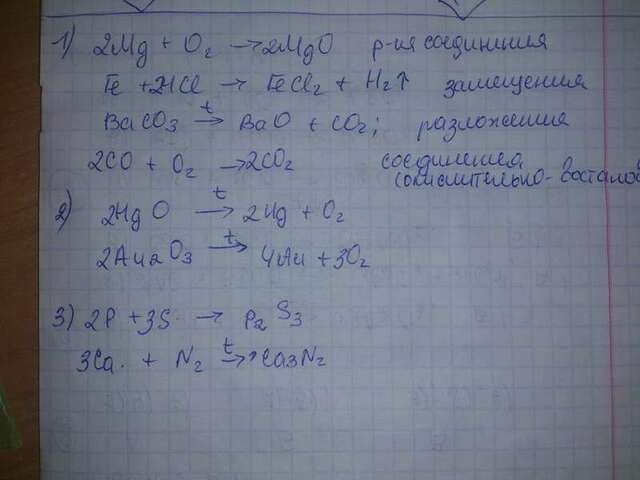 1) 2Mg + O₂ → 2MgO р-ия соедининия
Fe + 2HCl → FeCl₂ + H₂↑ замещения
BaCO₃ t→ BaO + CO₂; разложения
2CO + O₂ → 2CO₂ соединения
(окислительно-восстанов
2) 2HgO t→ 2Hg + O₂
2Au₂O₃ t→ 4Au + 3O₂
3) 2P + 3S → P₂S₃
3Ca + N₂ t→ Ca₃N₂